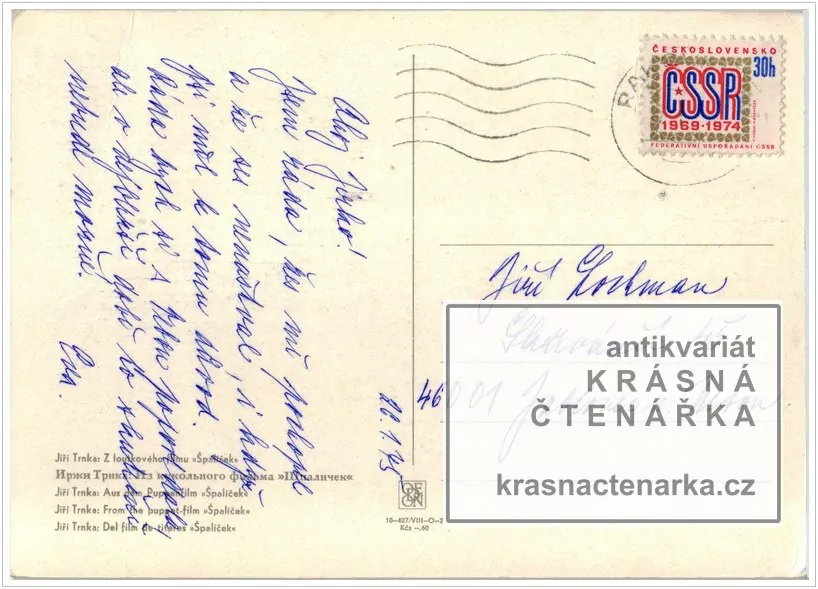 Ahoj Jirko!
Jsem ráda, žes mě pochopil
a že ses nenaštval, i když
jsi měl k tomu důvod.
Ráda bych si s Tebou
ale v nejbližší době to
nebude možné.
Eva.
26.1.75
Jiří Trnka: Z loutkového filmu »Špalíček«
Иржи Трнка: Из кукольного фильма »Шпаличек«
Jiří Trnka: Aus dem Puppenfilm »Špalíček«
Jiří Trnka: From the puppet-film »Špalíček«
Jiří Trnka: Del film de títeres »Špalíček«
ORBIS
10-427/VIII-O-2
Kčs -.60
ČESKOSLOVENSKO
30h
ČSSR
1969·1974
FEDERATIVNÍ USPOŘÁDÁNÍ ČSSR
Jiří Lochman
460 01
antikvariát
KRÁSNÁ
ČTENÁŘKA
krasnactenarka.cz